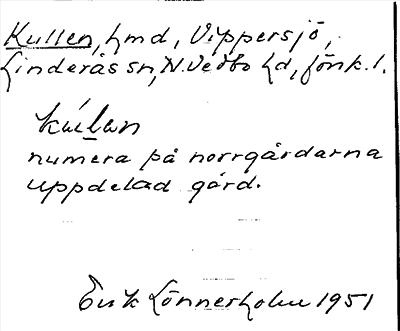 Kullen, Lmd, Vippersjö,
Linderås sn, N. Vedbo hd, Jönk. l.
kúlan
numera på norrgårdarna
uppdelad gård.
Erik Lönnerholm 1951